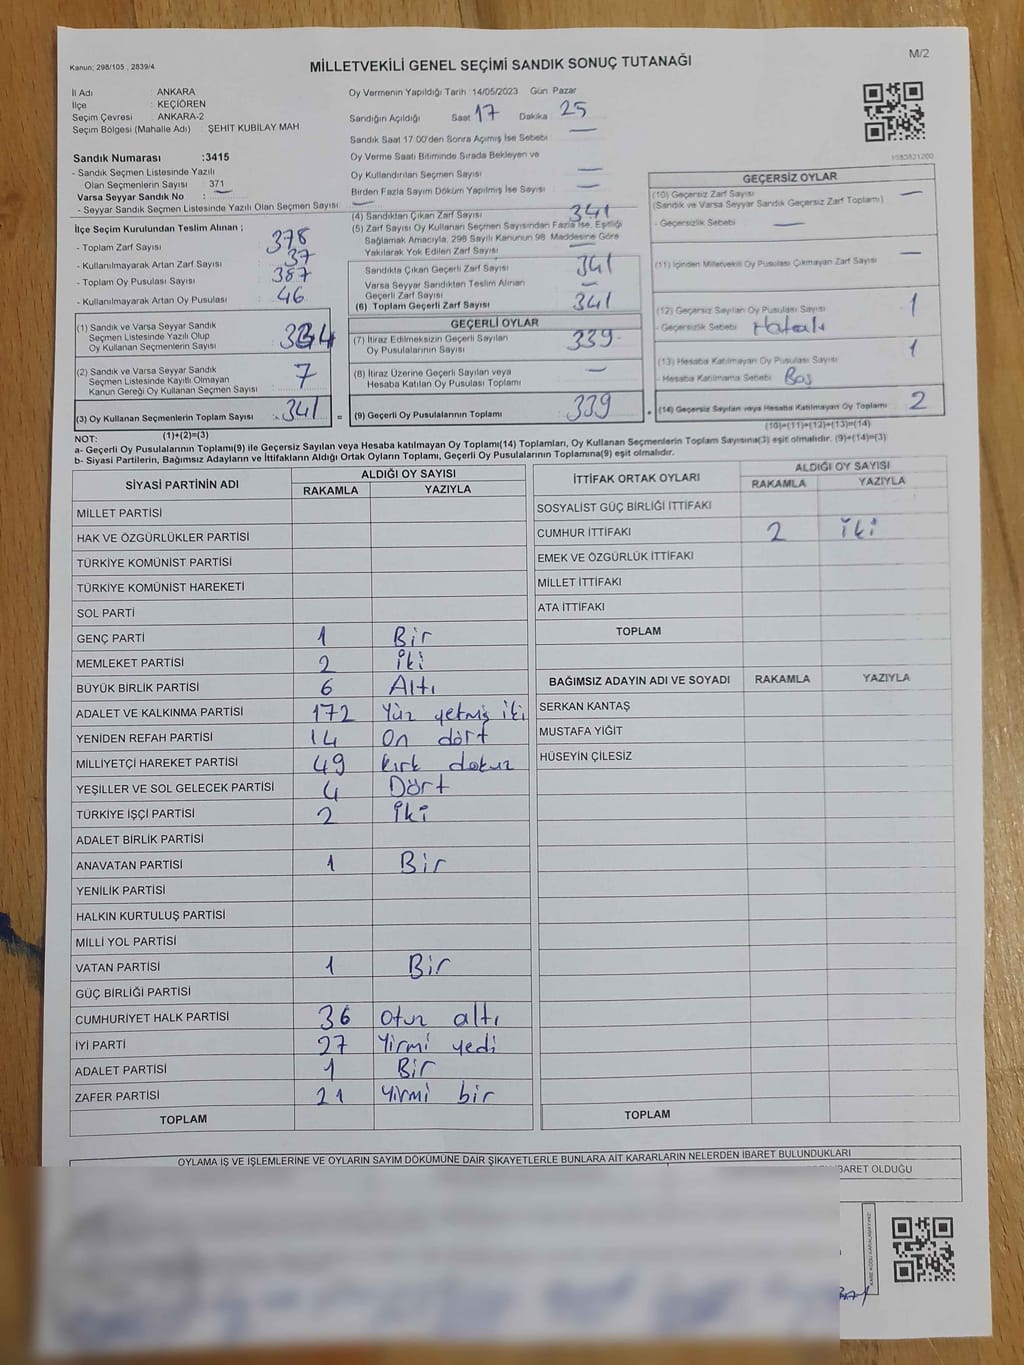 Kanun; 298/105 , 2839/4
MİLLETVEKİLİ GENEL SEÇİMİ SANDIK SONUÇ TUTANAĞI
M/2
İl Adı : ANKARA
İlçe : KEÇİÖREN
Seçim Çevresi : ANKARA-2
Seçim Bölgesi (Mahalle Adı) : ŞEHİT KUBİLAY MAH
Sandık Numarası :3415
- Sandık Seçmen Listesinde Yazılı
Olan Seçmenlerin Sayısı : 371
Varsa Seyyar Sandık No :
- Seyyar Sandık Seçmen Listesinde Yazılı Olan Seçmen Sayısı : —
İlçe Seçim Kurulundan Teslim Alınan ;
- Toplam Zarf Sayısı : 378
- Kullanılmayarak Artan Zarf Sayısı : 37
- Toplam Oy Pusulası Sayısı : 387
- Kullanılmayarak Artan Oy Pusulası : 46
(1) Sandık ve Varsa Seyyar Sandık
Seçmen Listesinde Yazılı Olup
Oy Kullanan Seçmenlerin Sayısı : 334
(2) Sandık ve Varsa Seyyar Sandık
Seçmen Listesinde Kayıtlı Olmayan
Kanun Gereği Oy Kullanan Seçmen Sayısı : 7
(3) Oy Kullanan Seçmenlerin Toplam Sayısı : 341
Oy Vermenin Yapıldığı Tarih :14/05/2023 Gün Pazar
Sandığın Açıldığı Saat 17 Dakika 25
Sandık Saat 17:00'den Sonra Açılmış İse Sebebi : —
Oy Verme Saati Bitiminde Sırada Bekleyen ve
Oy Kullandırılan Seçmen Sayısı : —
Birden Fazla Sayım Döküm Yapılmış İse Sayısı : —
(4) Sandıktan Çıkan Zarf Sayısı : 341
(5) Zarf Sayısı Oy Kullanan Seçmen Sayısından Fazla İse, Eşitliği
Sağlamak Amacıyla, 298 Sayılı Kanunun 98. Maddesine Göre
Yakılarak Yok Edilen Zarf Sayısı : —
Sandıkta Çıkan Geçerli Zarf Sayısı : 341
Varsa Seyyar Sandıktan Teslim Alınan
Geçerli Zarf Sayısı : —
(6) Toplam Geçerli Zarf Sayısı : 341
GEÇERLİ OYLAR
(7) İtiraz Edilmeksizin Geçerli Sayılan
Oy Pusulalarının Sayısı : 339
(8) İtiraz Üzerine Geçerli Sayılan veya
Hesaba Katılan Oy Pusulası Toplamı : —
= (9) Geçerli Oy Pusulalarının Toplamı : 339 +
1083831200
GEÇERSİZ OYLAR
(10) Geçersiz Zarf Sayısı : —
(Sandık ve Varsa Seyyar Sandık Geçersiz Zarf Toplamı)
- Geçersizlik Sebebi : —
(11) İçinden Milletvekili Oy Pusulası Çıkmayan Zarf Sayısı : —
(12) Geçersiz Sayılan Oy Pusulası Sayısı : 1
- Geçersizlik Sebebi : Hatalı
(13) Hesaba Katılmayan Oy Pusulası Sayısı : 1
- Hesaba Katılmama Sebebi : Boş
(14) Geçersiz Sayılan veya Hesaba Katılmayan Oy Toplamı : 2
(10)+(11)+(12)+(13)=(14)
NOT: (1)+(2)=(3)
a- Geçerli Oy Pusulalarının Toplamı(9) ile Geçersiz Sayılan veya Hesaba katılmayan Oy Toplamı(14) Toplamları, Oy Kullanan Seçmenlerin Toplam Sayısına(3) eşit olmalıdır. (9)+(14)=(3)
b- Siyasi Partilerin, Bağımsız Adayların ve İttifakların Aldığı Ortak Oyların Toplamı, Geçerli Oy Pusulalarının Toplamına(9) eşit olmalıdır.
SİYASİ PARTİNİN ADI ALDIĞI OY SAYISI
RAKAMLA YAZIYLA
MİLLET PARTİSİ
HAK VE ÖZGÜRLÜKLER PARTİSİ
TÜRKİYE KOMÜNİST PARTİSİ
TÜRKİYE KOMÜNİST HAREKETİ
SOL PARTİ
GENÇ PARTİ 1 Bir
MEMLEKET PARTİSİ 2 İki
BÜYÜK BİRLİK PARTİSİ 6 Altı
ADALET VE KALKINMA PARTİSİ 172 Yüz yetmiş iki
YENİDEN REFAH PARTİSİ 14 On dört
MİLLİYETÇİ HAREKET PARTİSİ 49 Kırk dokuz
YEŞİLLER VE SOL GELECEK PARTİSİ 4 Dört
TÜRKİYE İŞÇİ PARTİSİ 2 İki
ADALET BİRLİK PARTİSİ
ANAVATAN PARTİSİ 1 Bir
YENİLİK PARTİSİ
HALKIN KURTULUŞ PARTİSİ
MİLLİ YOL PARTİSİ
VATAN PARTİSİ 1 Bir
GÜÇ BİRLİĞİ PARTİSİ
CUMHURİYET HALK PARTİSİ 36 Otuz altı
İYİ PARTİ 27 Yirmi yedi
ADALET PARTİSİ 1 Bir
ZAFER PARTİSİ 21 Yirmi bir
TOPLAM
İTTİFAK ORTAK OYLARI ALDIĞI OY SAYISI
RAKAMLA YAZIYLA
SOSYALİST GÜÇ BİRLİĞİ İTTİFAKI
CUMHUR İTTİFAKI 2 İki
EMEK VE ÖZGÜRLÜK İTTİFAKI
MİLLET İTTİFAKI
ATA İTTİFAKI
TOPLAM
BAĞIMSIZ ADAYIN ADI VE SOYADI RAKAMLA YAZIYLA
SERKAN KANTAŞ
MUSTAFA YİĞİT
HÜSEYİN ÇİLESİZ
TOPLAM
OYLAMA İŞ VE İŞLEMLERİNE VE OYLARIN SAYIM DÖKÜMÜNE DAİR ŞİKAYETLERLE BUNLARA AİT KARARLARIN NELERDEN İBARET BULUNDUKLARI
İBARET OLDUĞU